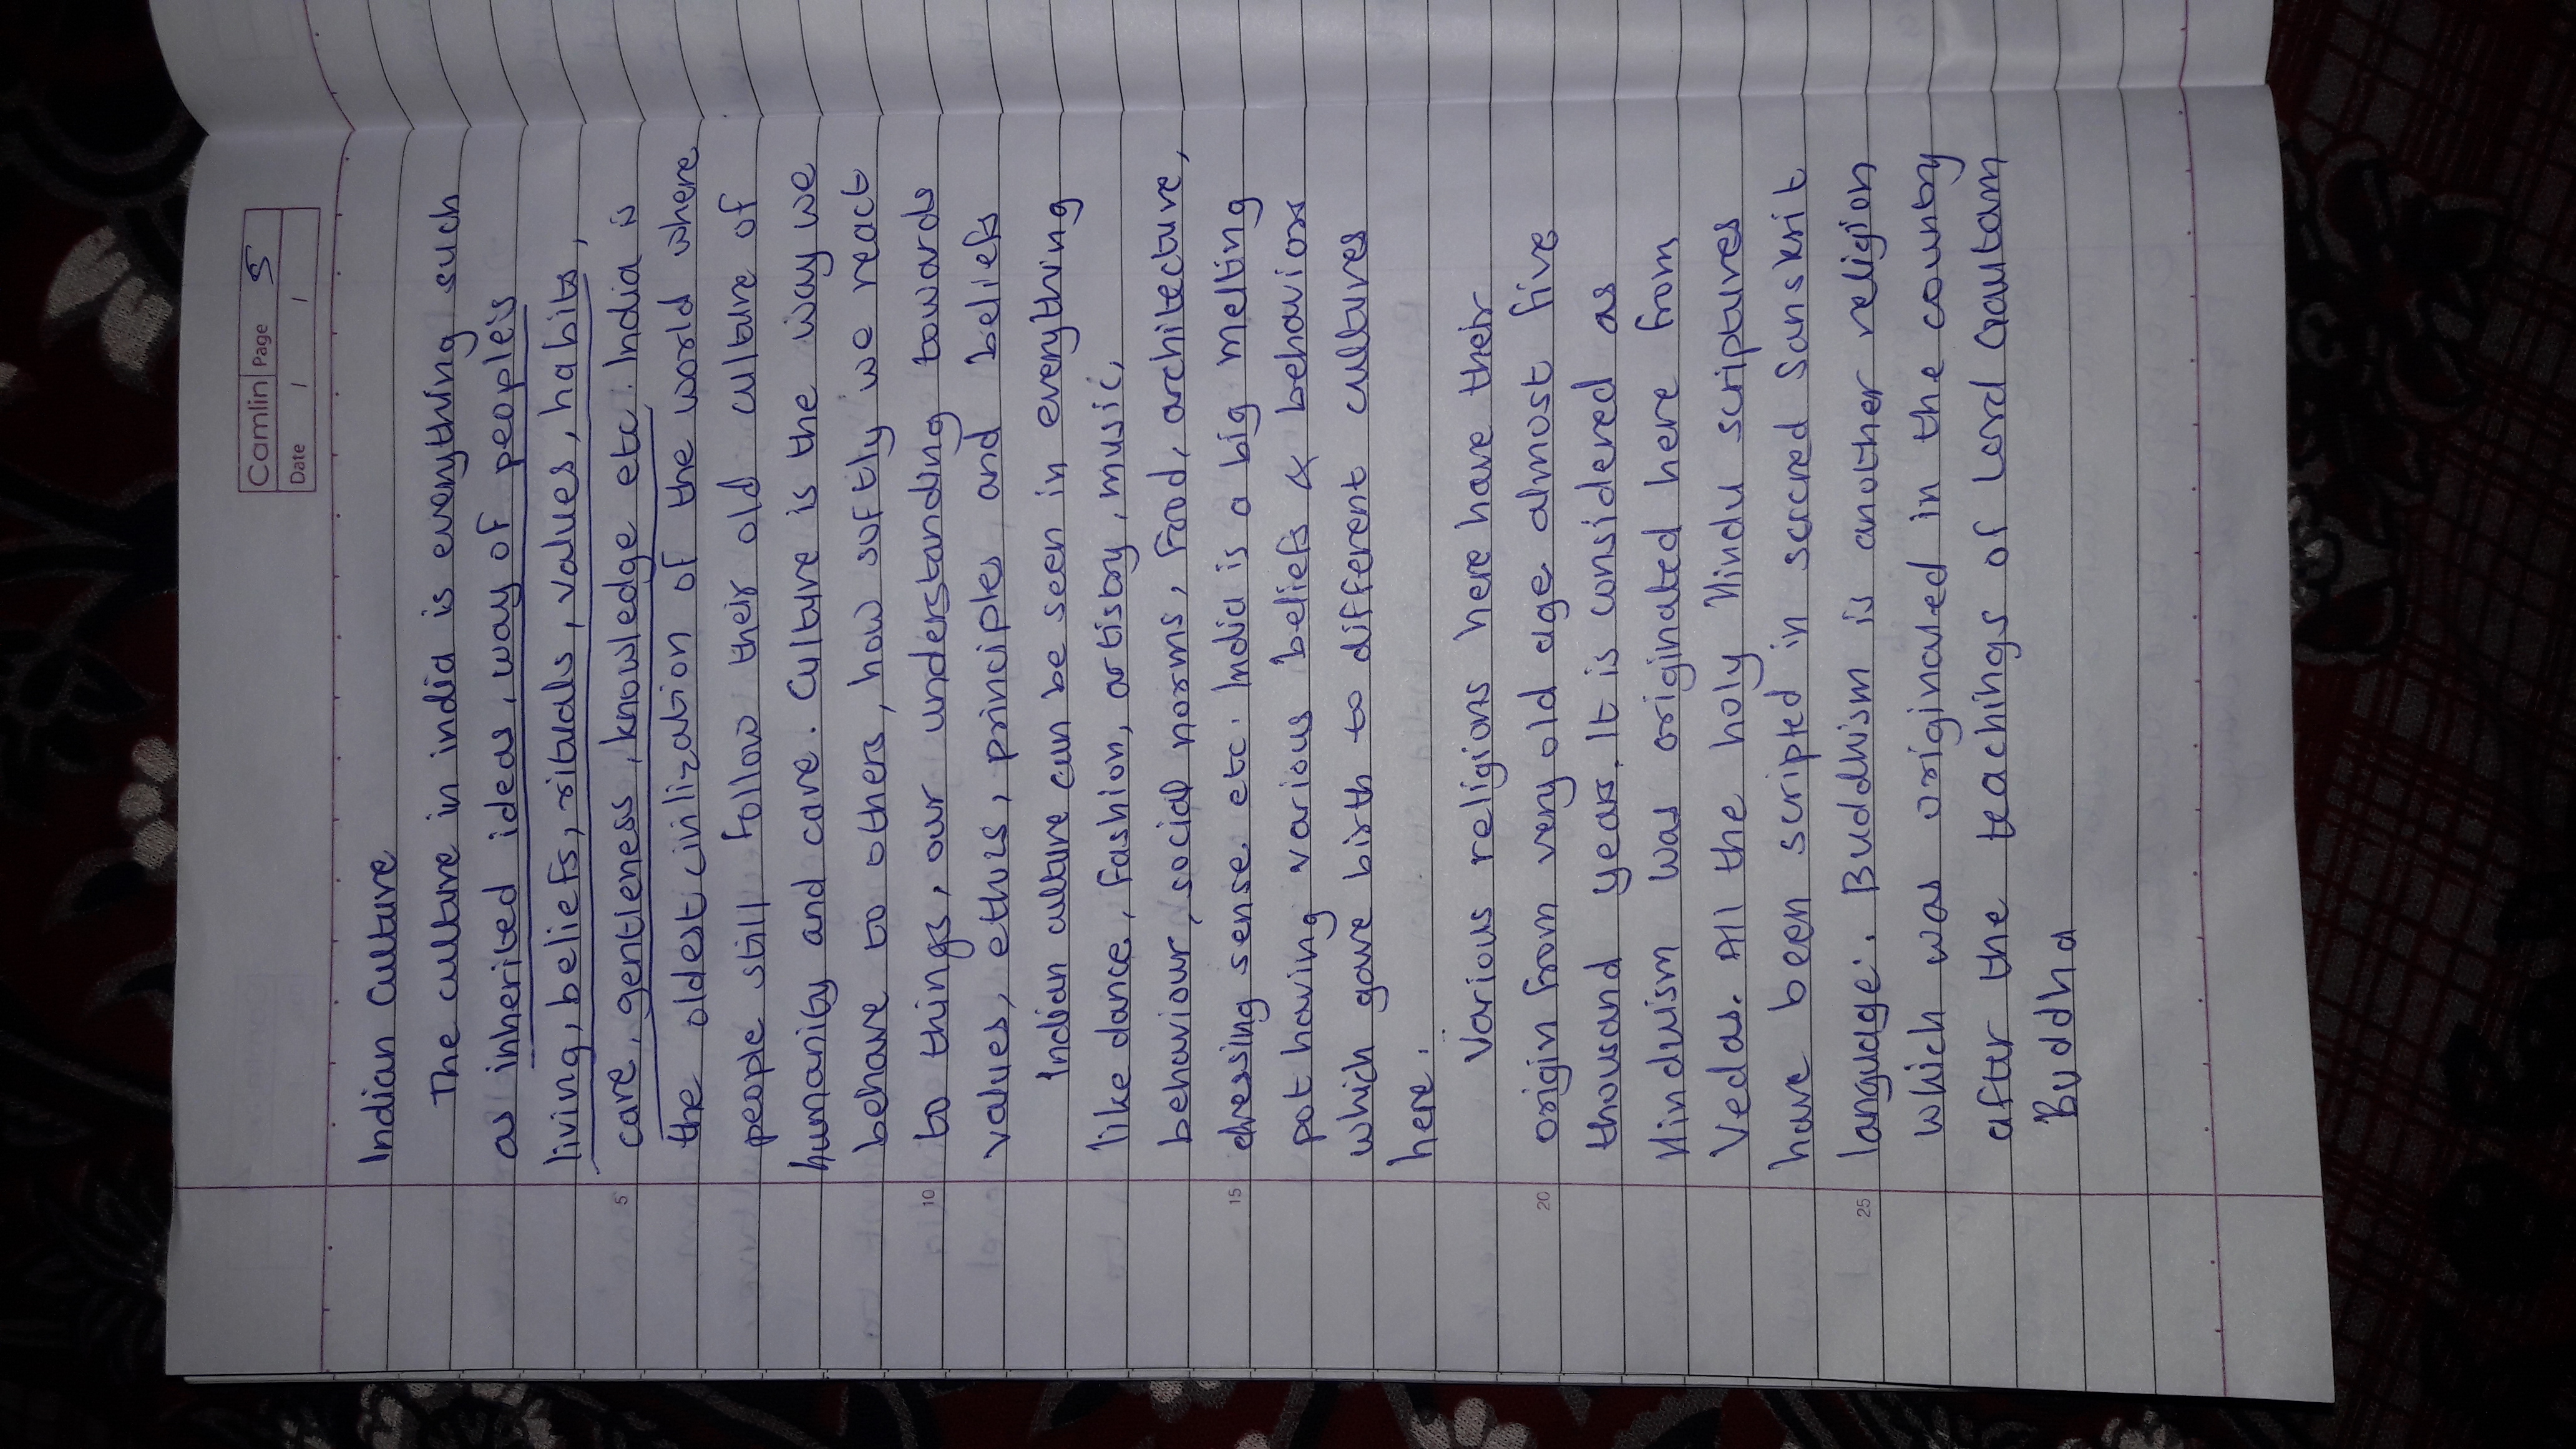 Camlin Page 5
Date / /
Indian Culture
The culture in india is everything such
as inherited ideas, way of people's
living, beliefs, rituals, values, habits,
5 care, gentleness, knowledge etc. India is
the oldest civilization of the world where
people still follow their old culture of
humanity and care. Culture is the way we
behave to others, how softly we react
10 to things, our understanding towards
values, ethics, principles and beliefs
Indian culture can be seen in everything
like dance, fashion, artistry, music,
behaviour, social norms, food, architecture,
15 dressing sense etc. India is a big melting
pot having various beliefs & behaviors
which gave birth to different cultures
here.
Various religions here have their
20 origin from very old age almost five
thousand years. It is considered as
Hinduism was originated here from
Vedas. All the holy Hindu scriptures
have been scripted in sacred Sanskrit
25 language. Buddhism is another religion
which was originated in the country
after the teachings of Lord Gautam
Buddha